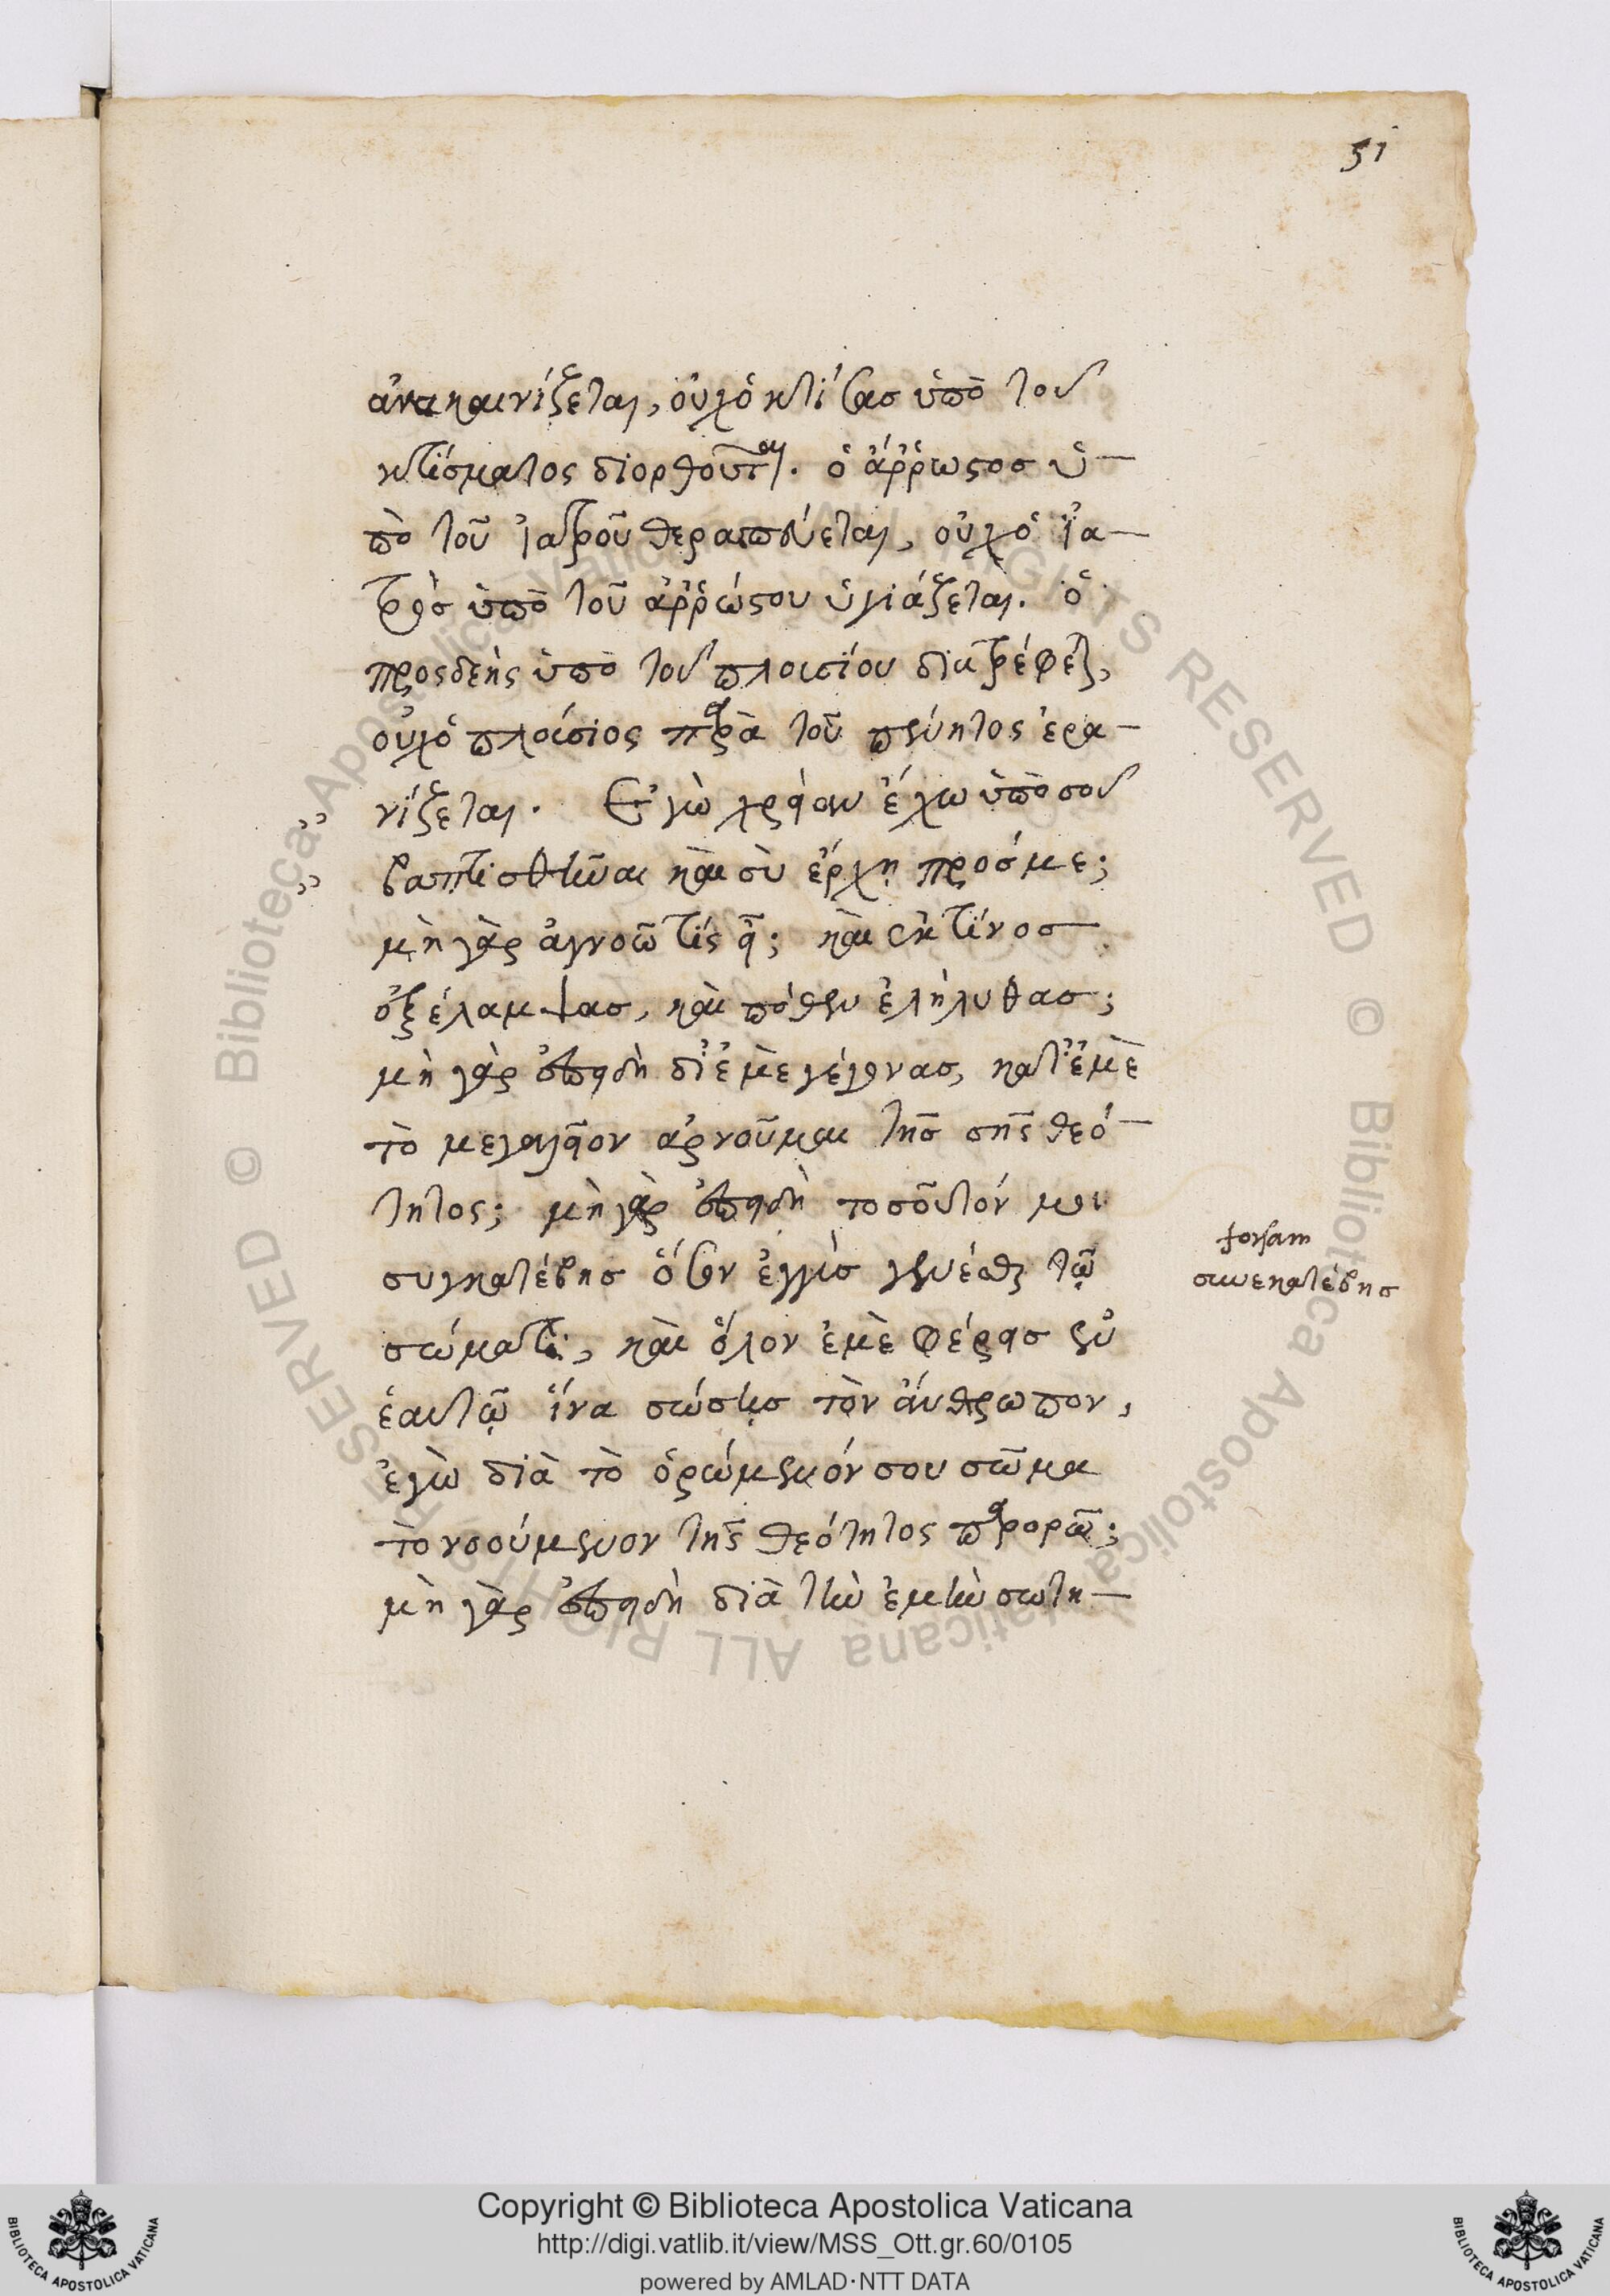 51
ἀνακαινίζεται, οὐχ ὁ κτίσας ὑπὸ τοῦ
κτίσματος διορθοῦται. ὁ ἄῤῥωστος ὑ-
πὸ τοῦ ἰατροῦ θεραπεύεται, οὐχ ὁ ἰα-
τρὸς ὑπὸ τοῦ ἀῤῥώστου ὑγιάζεται. ὁ
προςδεὴς ὑπὸ τοῦ πλουσίου διατρέφεται,
οὐχ ὁ πλούσιος παρὰ τοῦ πένητος ἐρα-
νίζεται. Ἐγὼ χρείαν ἔχω ὑπὸ σοῦ
βαπτισθῆναι καὶ σὺ ἔρχῃ πρός με;
μὴ γὰρ ἀγνοῶ τίς εἶ; καὶ ἐκ τίνος
ἐξέλαμψας, καὶ πόθεν ἐλήλυθας;
μὴ γὰρ ἐπειδὴ δι' ἐμὲ γέγονας, κατ' ἐμὲ
τὸ μεγαλεῖον ἀρνοῦμαι τῆς σῆς θεό-
τητος; μὴ γὰρ ἐπειδὴ τοσοῦτόν μοι
συγκατέβης ὅσον ἐγγὺς γενέσθαι τῷ
σώματι, καὶ ὅλον ἐμὲ φέρεις ἐν
ἑαυτῷ ἵνα σώσῃς τὸν ἄνθρωπον,
ἐγὼ διὰ τὸ ὁρώμενόν σου σῶμα
τὸ νοούμενον τῆς θεότητος παρορῶ;
μὴ γὰρ ἐπειδὴ διὰ τὴν ἐμὴν σωτη-
forsam
συνεκατέβης
Copyright © Biblioteca Apostolica Vaticana
http://digi.vatlib.it/view/MSS_Ott.gr.60/0105
powered by AMLAD·NTT DATA
BIBLIOTECA APOSTOLICA VATICANA
BIBLIOTECA APOSTOLICA VATICANA
© Biblioteca Apostolica Vaticana ALL RIGHTS RESERVED
© Biblioteca Apostolica Vaticana ALL RIGHTS RESERVED